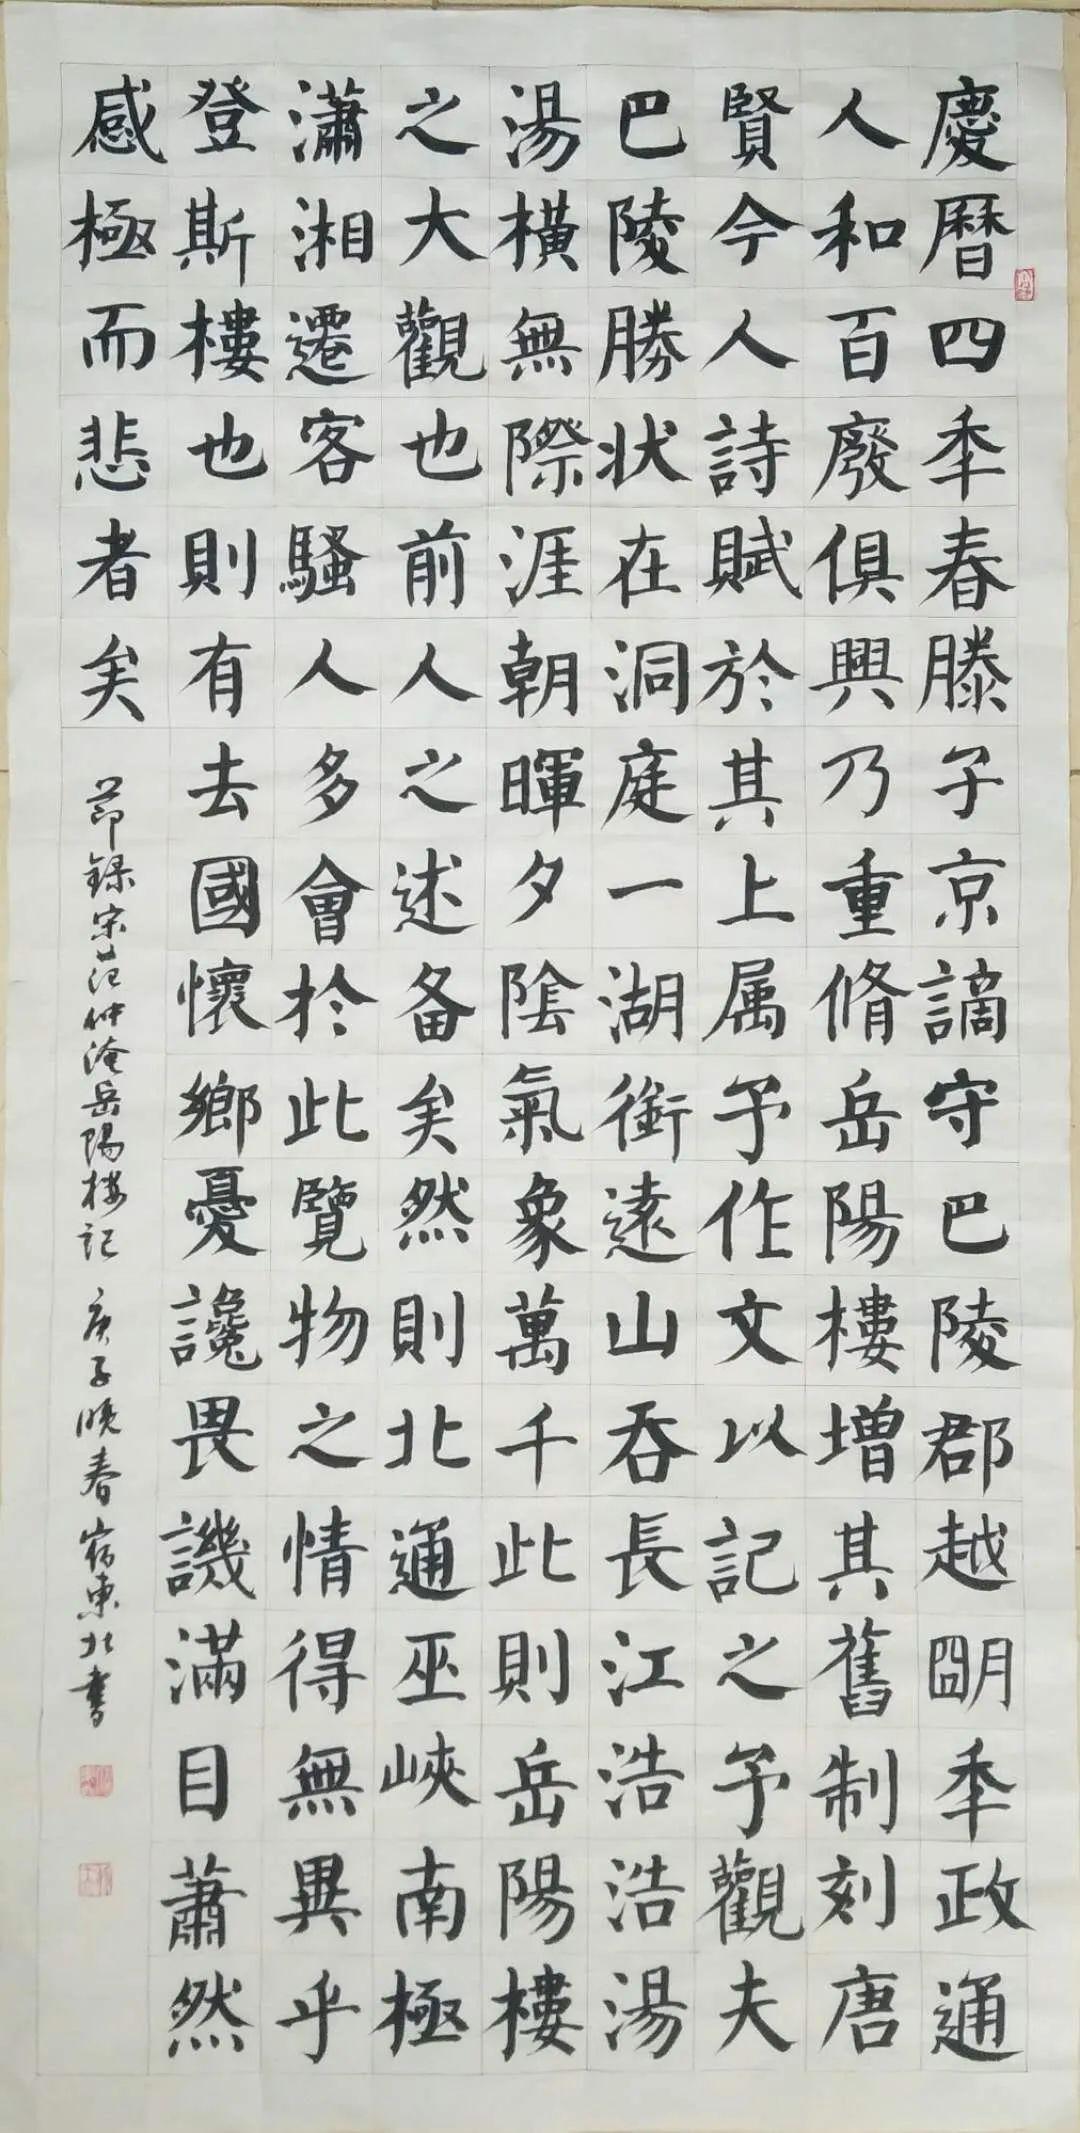 慶曆四秊春滕子京謫守巴陵郡越朙秊政通
人和百廢俱興乃重脩岳陽樓增其舊制刻唐
賢今人詩賦於其上属予作文以記之予觀夫
巴陵勝狀在洞庭一湖銜遠山吞長江浩浩湯
湯橫無際涯朝暉夕陰氣象萬千此則岳陽樓
之大觀也前人之述备矣然則北通巫峽南極
瀟湘遷客騷人多會於此覽物之情得無異乎
登斯樓也則有去國懷鄉憂讒畏譏滿目蕭然
感極而悲者矣
节録宋范仲淹岳陽楼記 庚子晚春 宿東北書